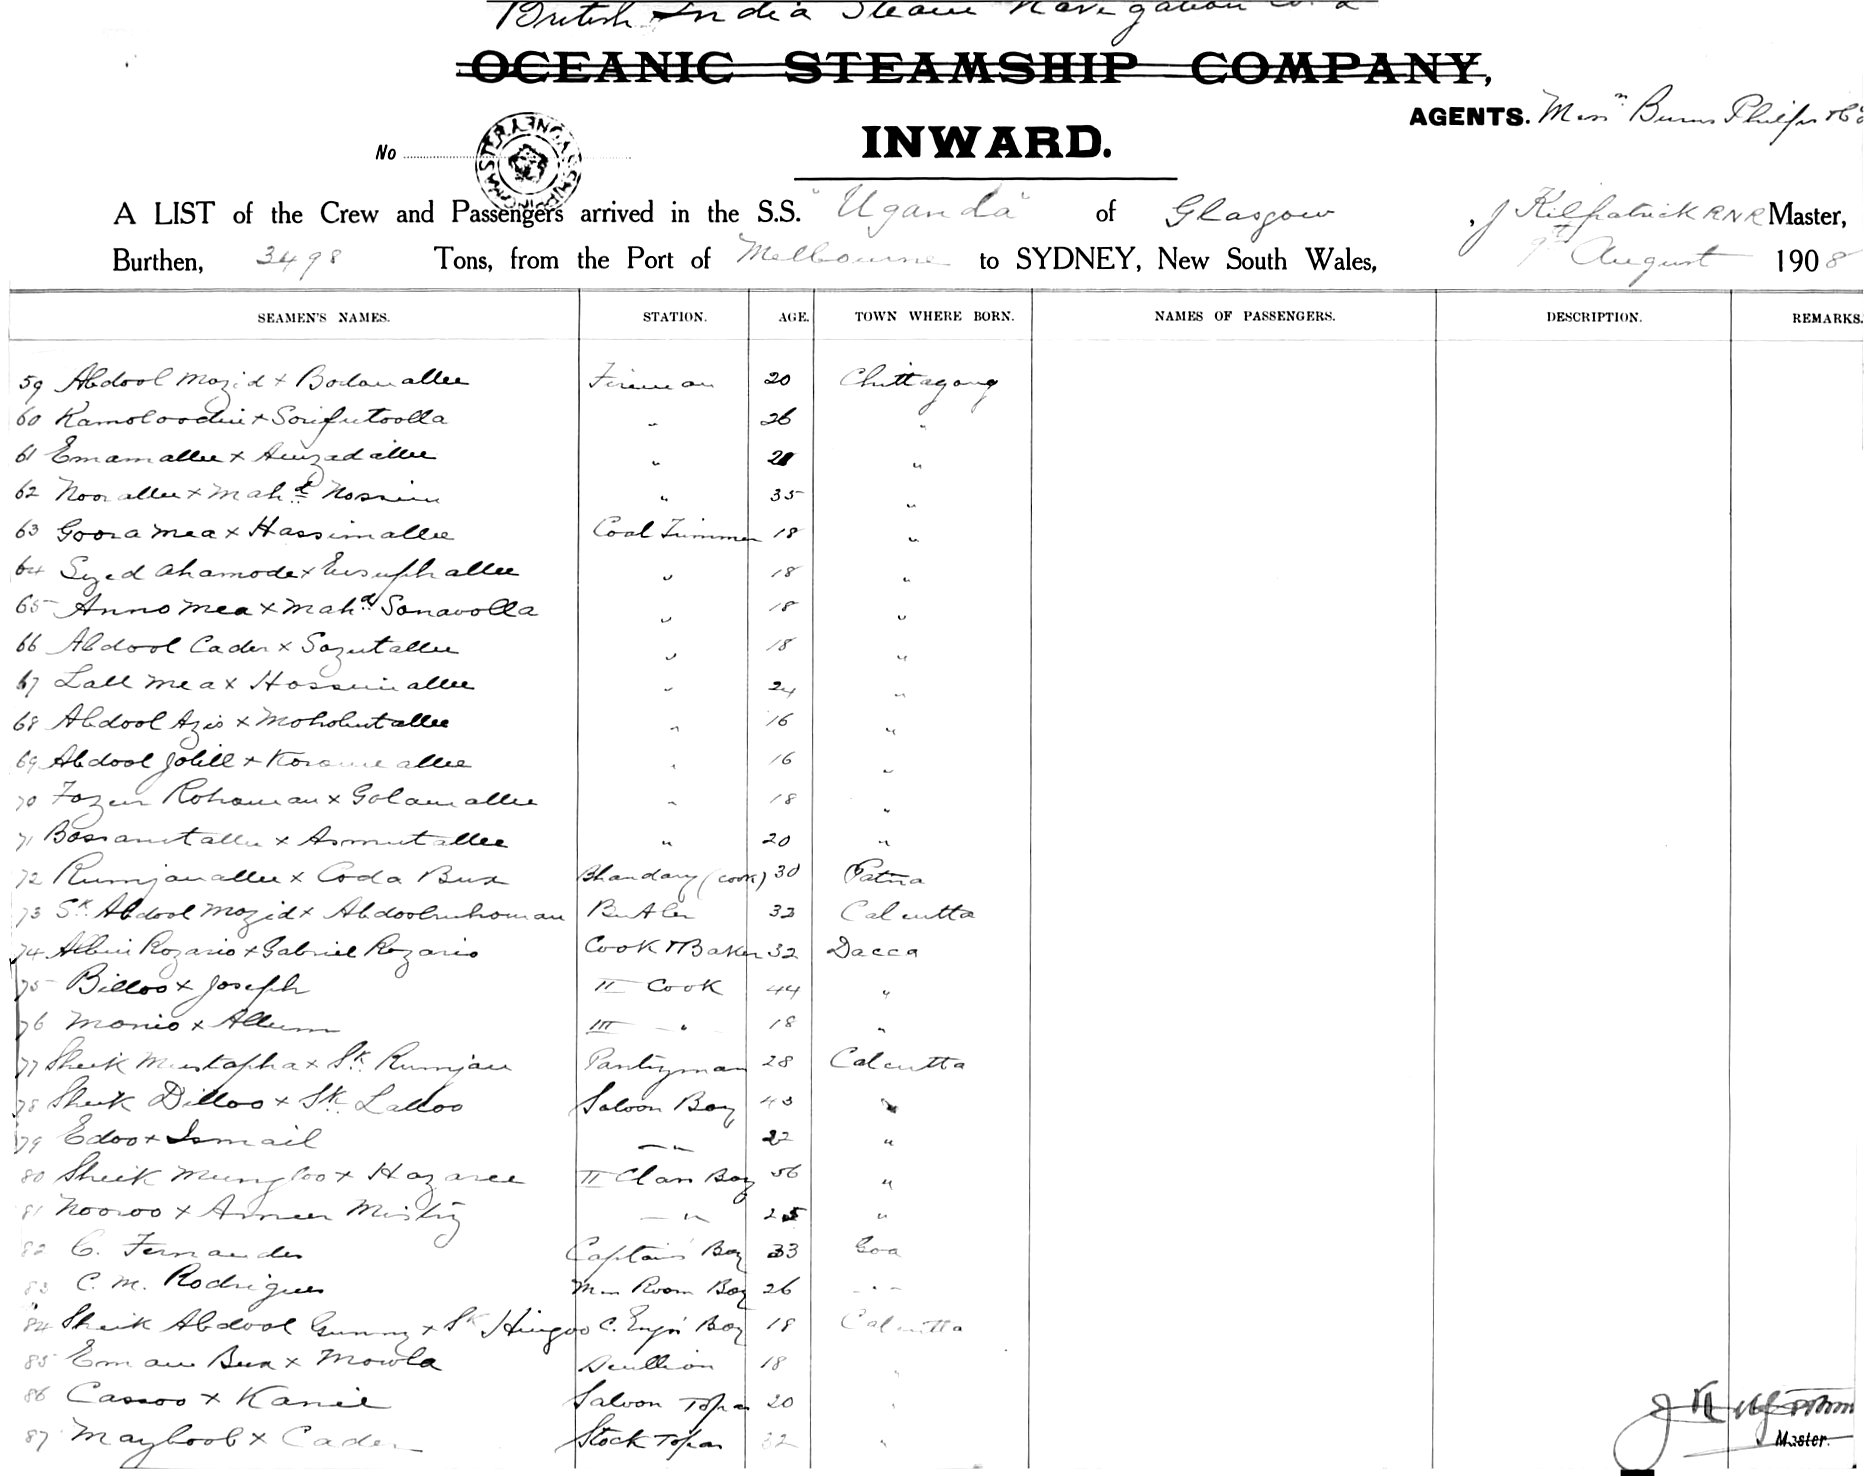 British India Steam Navigation Co Ld
OCEANIC STEAMSHIP COMPANY,
AGENTS. Messrs Burns Philp & Co
No INWARD.
A LIST of the Crew and Passengers arrived in the S.S. "Uganda" of Glasgow, J Kilpatrick RNR Master,
Burthen, 3498 Tons, from the Port of Melbourne to SYDNEY, New South Wales, 9th August 1908
SEAMEN'S NAMES. STATION. AGE. TOWN WHERE BORN. NAMES OF PASSENGERS. DESCRIPTION. REMARKS.
59 Abdool Mozid x Bodanallee Fireman 20 Chittagong
60 Kamoloodin x Sorifutoolla " 26 "
61 Emamallee x " 21 "
62 Noorallee x Mahd Nossim " 35 "
63 Goora Mea x Hassimallee Coal Trimmer 18 "
64 Syed Ahamode x Eusuphallee " 18 "
65 Anno Mea x Mahd Sonavolla " 18 "
66 Abdool Cader x Sozutallee " 18 "
67 Lall Mea x Hosseinallee " 24 "
68 Abdool Azis x Mohobutallee " 16 "
69 Abdool Jolill x Koramallee " 16 "
70 Fozur Rohoman x Golamallee " 18 "
71 Bossarutallee x Asmutallee " 20 "
72 Rumjanallee x Coda Bux Bhandary (cook) 30 Patna
73 Sk Abdool Mozid x Abdoolruhoman Butler 32 Calcutta
74 Albin Rozario x Gabriel Rozario Cook & Baker 32 Dacca
75 Billoo x Joseph II Cook 44 "
76 Monio x Allum III - " 18 "
77 Sheik Mustapha x Sk Rumjan Pantryman 28 Calcutta
78 Sheik Dilloo x Sk Lalloo Saloon Boy 43 "
79 Edoo x Ismail — " 22 "
80 Sheik Mungloo x Hazaree II Class Boy 56 "
81 Nooroo x Ameer Mistry — " 25 "
82 C. Fernandes Captain's Boy 33 Goa
83 C. M. Rodrigues Mess Room Boy 26 - -
84 Sheik Abdool Gunny x Sk Hingoo C. Engr Boy 18 Calcutta
85 Emam Bux x Mowla Scullion 18 "
86 Cassoo x Kanie Saloon Topas 20 "
87 Mayboob x Cader Stock Topas 32 "
J Kilpatrick
Master.